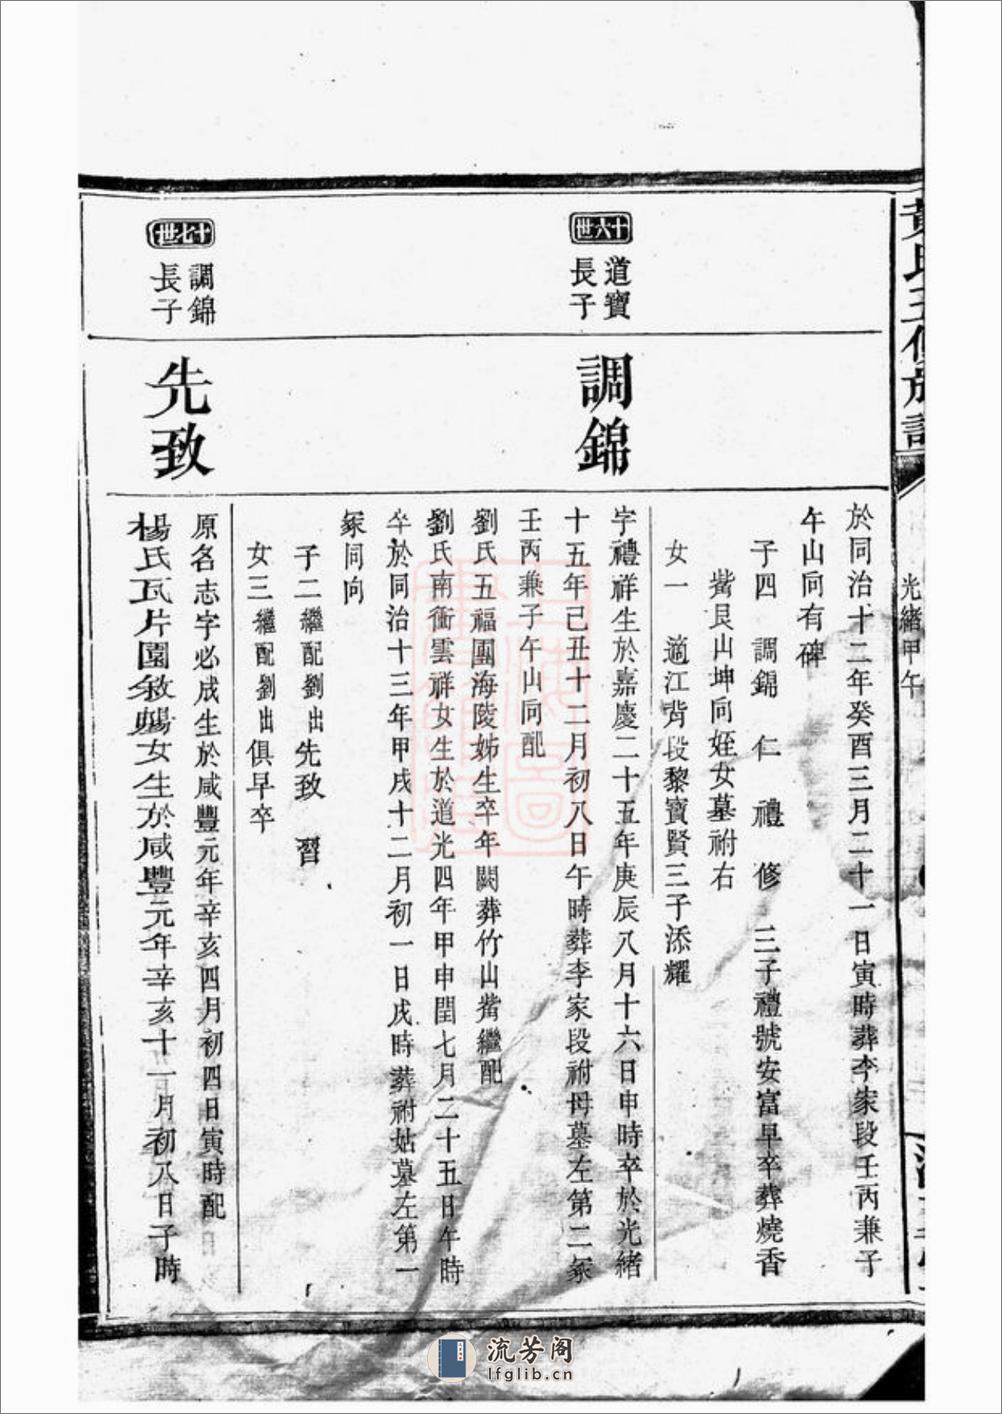 黃氏五修族譜
光緒甲午
於同治十二年癸酉三月二十一日寅時葬李家段壬丙兼子
午山向有碑
子四 調錦 仁 禮 修 三子禮號安富早卒葬燒香
觜艮山坤向姪女墓祔右
女一 適江背段黎寶賢三子添耀
十六世
道寶
長子
調錦
字禮祥生於嘉慶二十五年庚辰八月十六日申時卒於光緒
十五年己丑十二月初八日午時葬李家段祔母墓左第二冢
壬丙兼子午山向配
劉氏五福團海陵姊生卒年闕葬竹山觜繼配
劉氏南衝雲祥女生於道光四年甲申閏七月二十五日午時
卒於同治十三年甲戌十二月初一日戌時葬祔姑墓左第一
冢同向
子二繼配劉出先致 習
女三繼配劉出俱早卒
十七世
調錦
長子
先致
原名志字必成生於咸豐元年辛亥四月初四日寅時配
楊氏瓦片園敘賜女生於咸豐元年辛亥十一月初八日子時
流芳阁
lfglib.cn